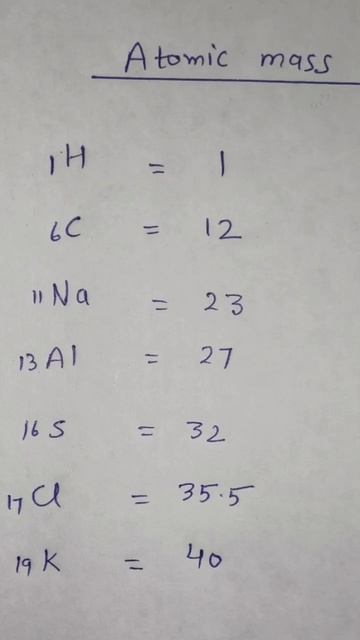 Atomic mass
1H = 1
6C = 12
11Na = 23
13Al = 27
16S = 32
17Cl = 35.5
19K = 40